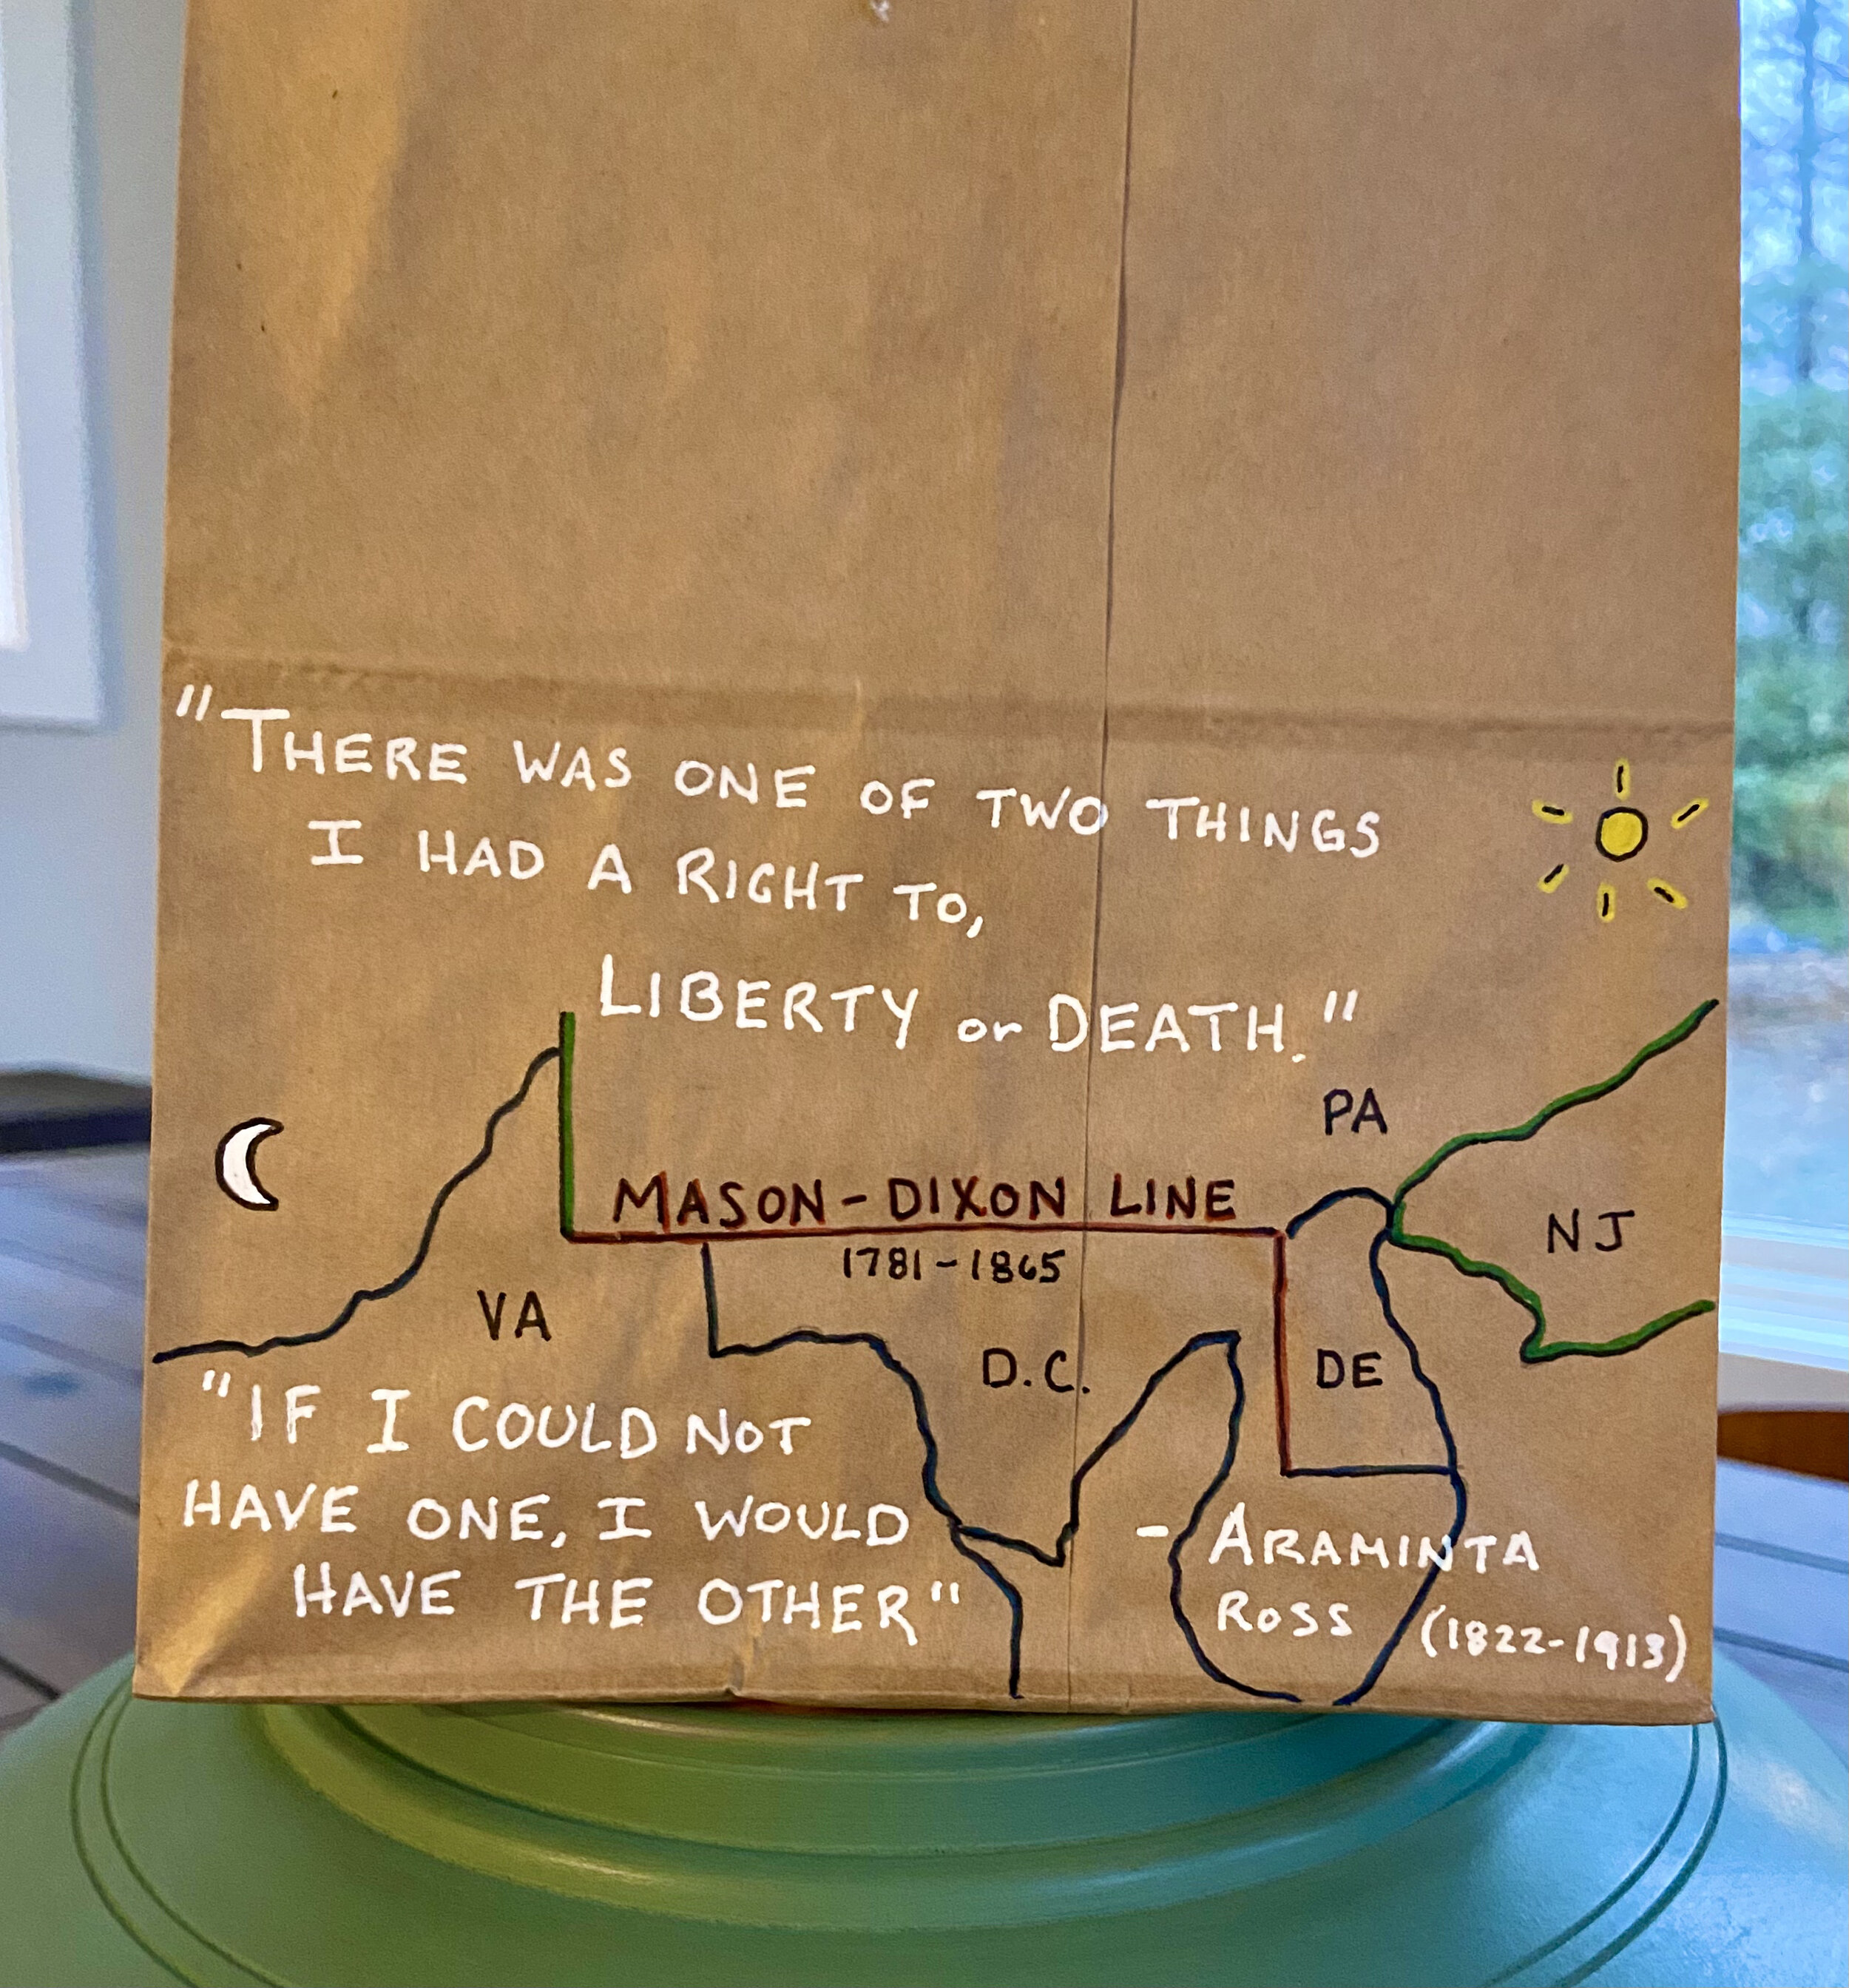 "THERE WAS ONE OF TWO THINGS
I HAD A RIGHT TO,
LIBERTY or DEATH."
PA
MASON-DIXON LINE
NJ
1781-1865
VA
D.C.
DE
"IF I COULD NOT
HAVE ONE, I WOULD
HAVE THE OTHER"
- ARAMINTA
ROSS (1822-1913)